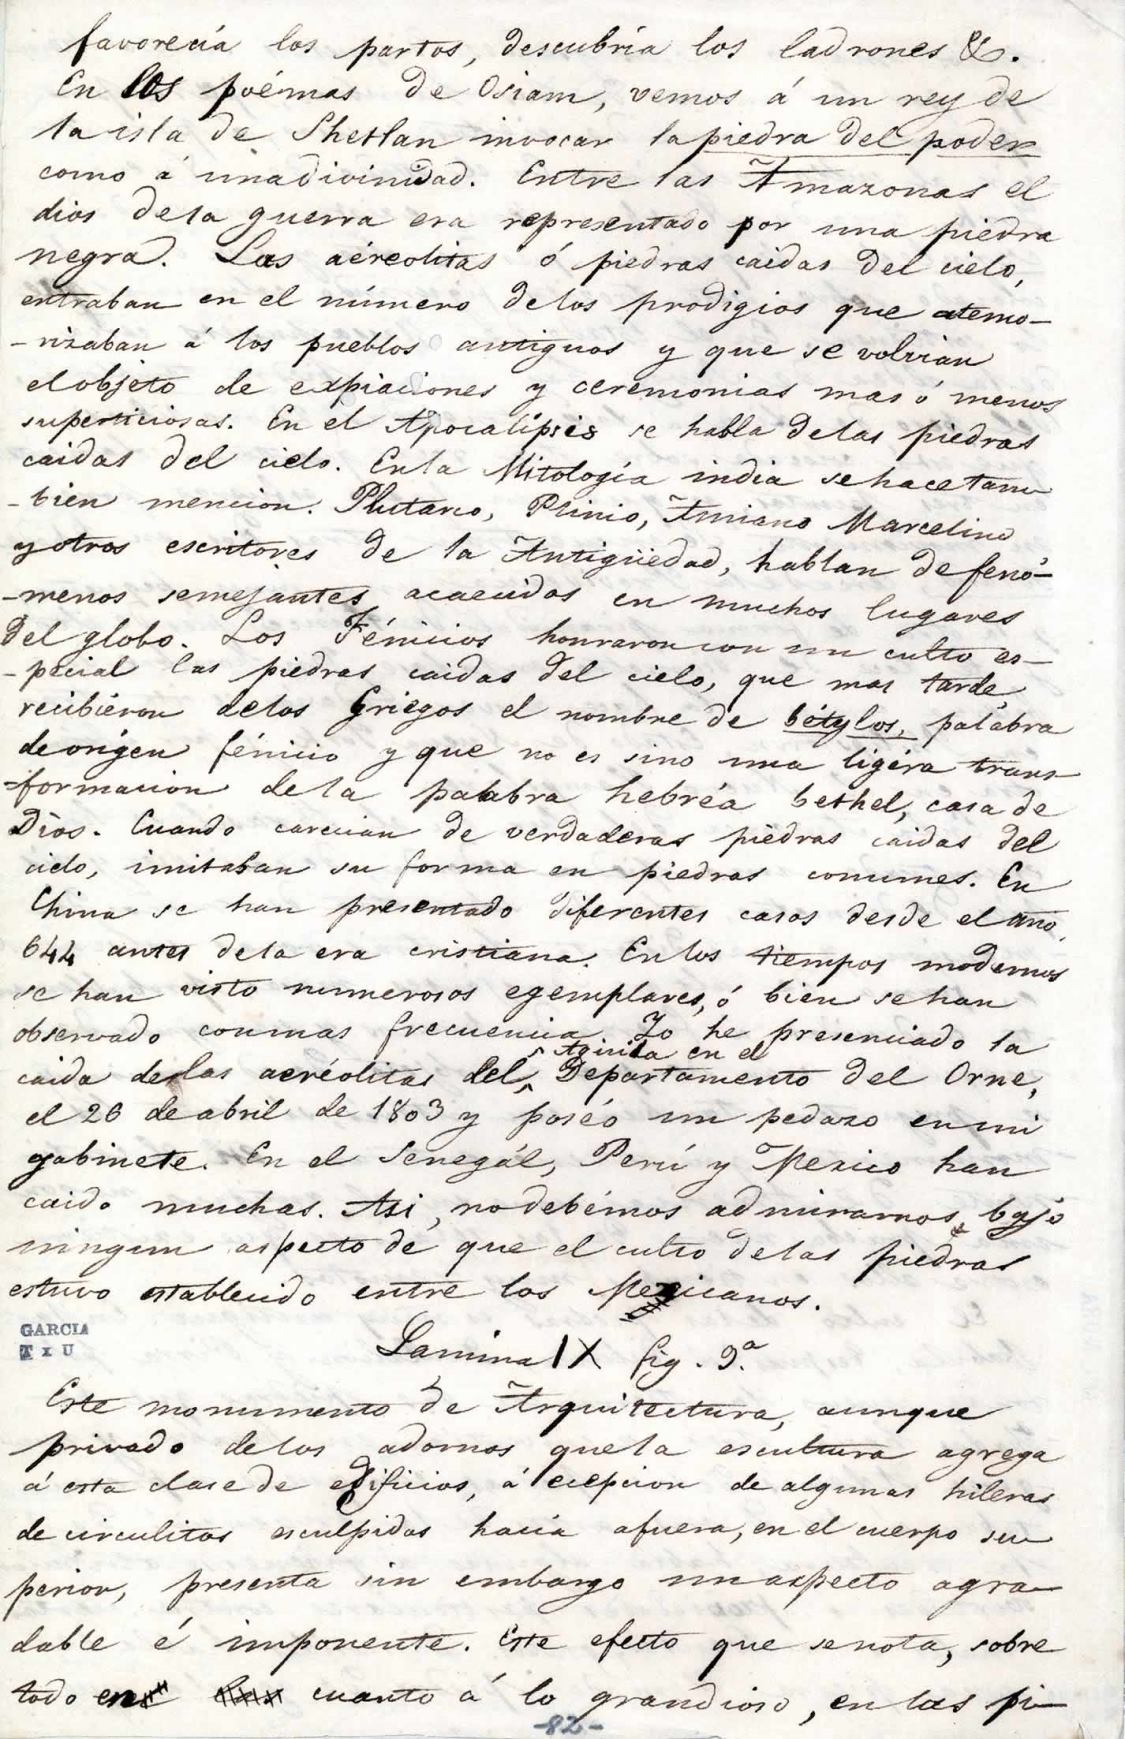 favorecia los partos, descubria los ladrones &.
En los poémas de Osiam, vemos á un rey de
la isla de Shetlan invocar la piedra del poder
como á una divinidad. Entre las Amazonas el
dios de la guerra era representado por una piedra
negra. Las aéreolitas ó piedras caidas del cielo,
entraban en el número de los prodigios que atemo-
-rizaban á los pueblos antiguos y que se volvian
el objeto de expiaciones y ceremonias mas ó menos
supersticiosas. En el Apocalipsis se habla de las piedras
caidas del cielo. En la Mitología india se hace tam
-bien mencion. Plutarco, Plinio, Amiano Marcelino
y otros escritores de la Antigüedad, hablan de fenó-
-menos semejantes acaecidos en muchos lugares
del globo. Los Fénicios honraron con un culto es-
-pecial las piedras caidas del cielo, que mas tarde
recibiéron de los Griegos el nombre de bétylos, palabra
de orígen fénicio y que no es sino una ligéra trans-
-formacion de la palabra hebréa bethel, casa de
Dios. Cuando carecian de verdaderas piedras caidas del
cielo, imitaban su forma en piedras comunes. En
China se han presentado diferentes casos desde el año
644 antes de la era cristiana. En los tiempos modernos
se han visto numerosos egemplares, ó bien se han
observado con mas frecuencia. Yo he presenciado la
en el
caida de las aeréolitas del Departamento del Orne,
el 26 de abril de 1803 y poséo un pedazo en mi
gabinete. En el Senegál, Perú y Mexico han
caido muchas. Asi, no debémos admirarnos, bajo
ningun aspecto de que el culto de las piedras
estuvo establecido entre los Mexicanos.
GARCIA
T x U
Lamina IX fig. 9.ª
Este monumento de Arquitectura, aunque
privado de los adornos que la escultura agrega
á esta clase de edificios, á ecepcion de algunas hileras
de circulitos esculpidos hacia afuera, en el cuerpo su
perior, presenta sin embargo un aspecto agra-
dable é imponente. Este efecto que se nota, sobre
todo en cuanto á lo grandioso, en las pi-
-82-